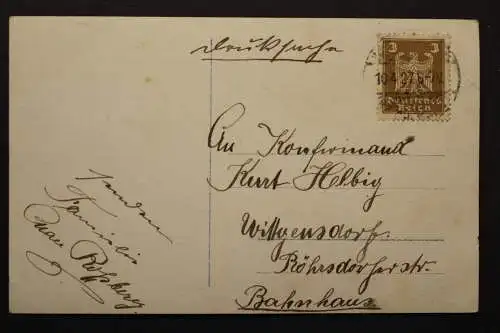 Drucksache
3 3
10.4.27
Deutsches
Reich
An Konfirmand
Kurt Helbig
Wittgensdorf
Röhrsdorferstr.
Bahnhaus
senden
Familie
Roßberg.